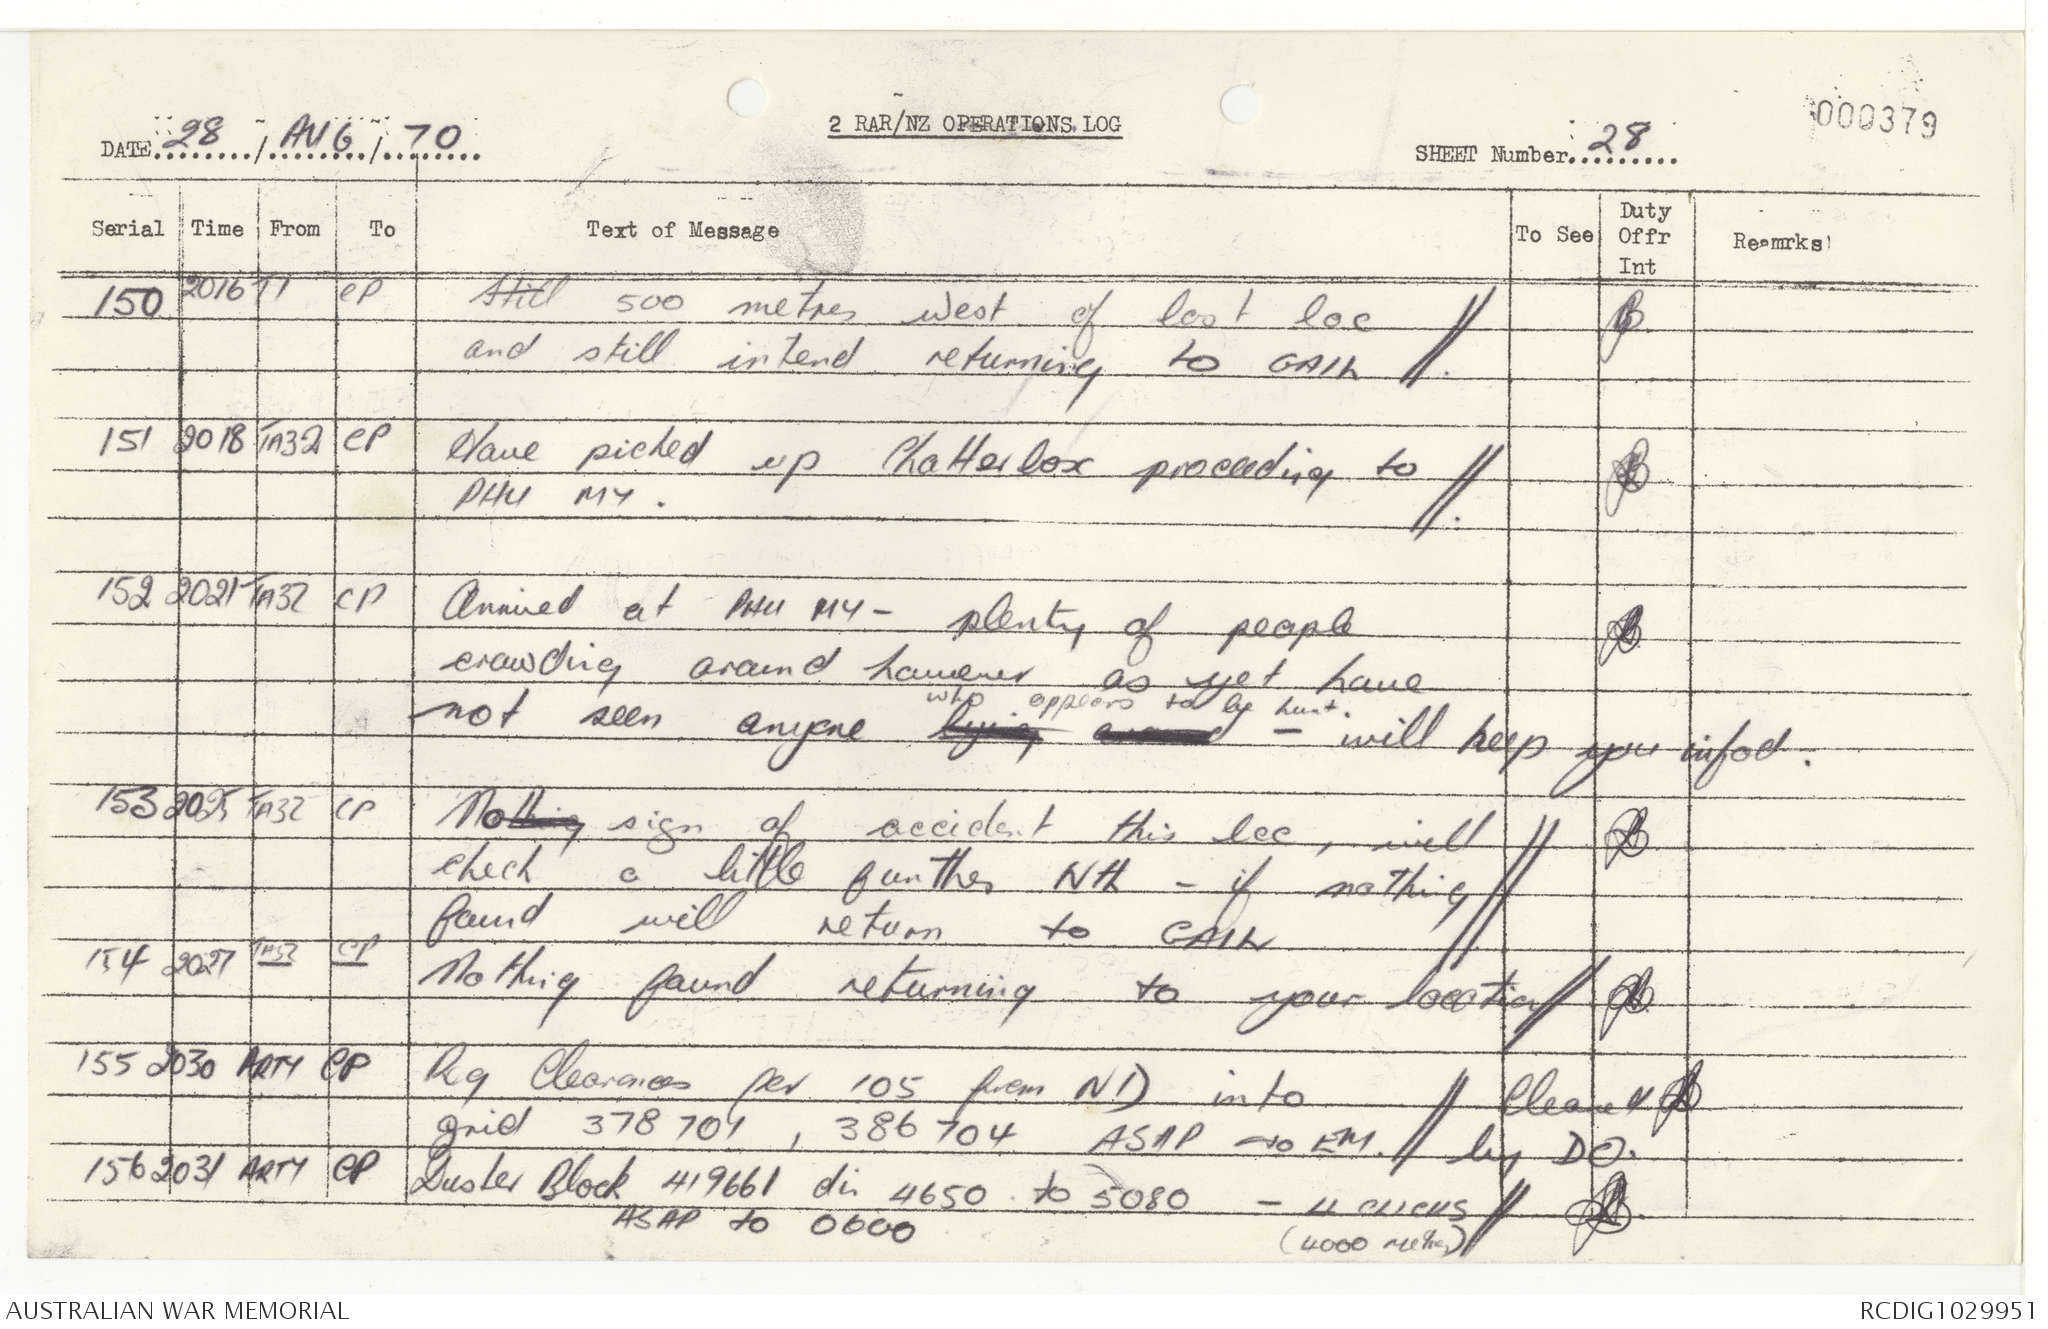 000379
DATE 28 / AUG / 70
2 RAR/NZ OPERATIONS LOG
SHEET Number 28
Serial Time From To Text of Message To See Duty Offr Int Reamrks
150 2016 T1 CP Still 500 metres west of last loc //
and still intend returning to GAIL //.
151 2018 TA32 CP Have picked up Chatterbox proceeding to //
PHU MY. //.
152 2021 TA32 CP Arrived at PHU MY - plenty of people
crowding around however as yet have
who appears to be hurt.
not seen anyone - will keep you infod.
153 2025 TA32 CP No sign of accident this loc, will
check a little further NTH - if nothing
found will return to GAIL //
154 2027 TA32 CP Nothing found returning to your location //
155 2030 ARTY CP Req Clearances per 105 from ND into // Cleared
grid 378704, 386704 ASAP to EM. // by DO.
156 2031 ARTY CP Duster Block 419661 dir 4650 to 5080 - 4 CLICKS //
ASAP to 0600 (4000 metres)
AUSTRALIAN WAR MEMORIAL
RCDIG1029951